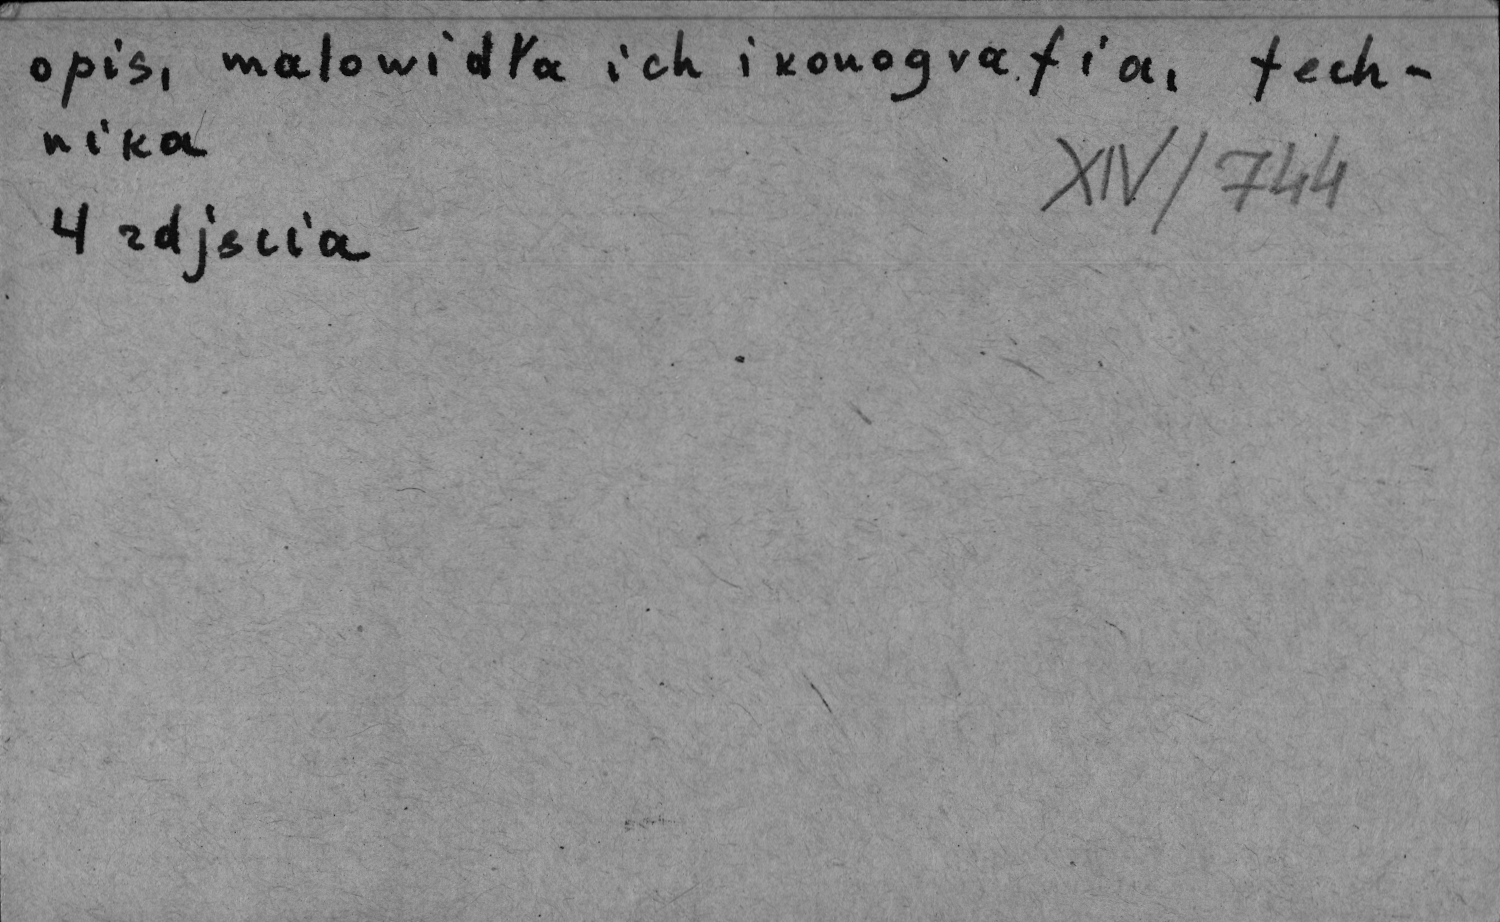 opis, malowidła ich ikonografia, tech-
nika
XIV/744
4 zdjscia